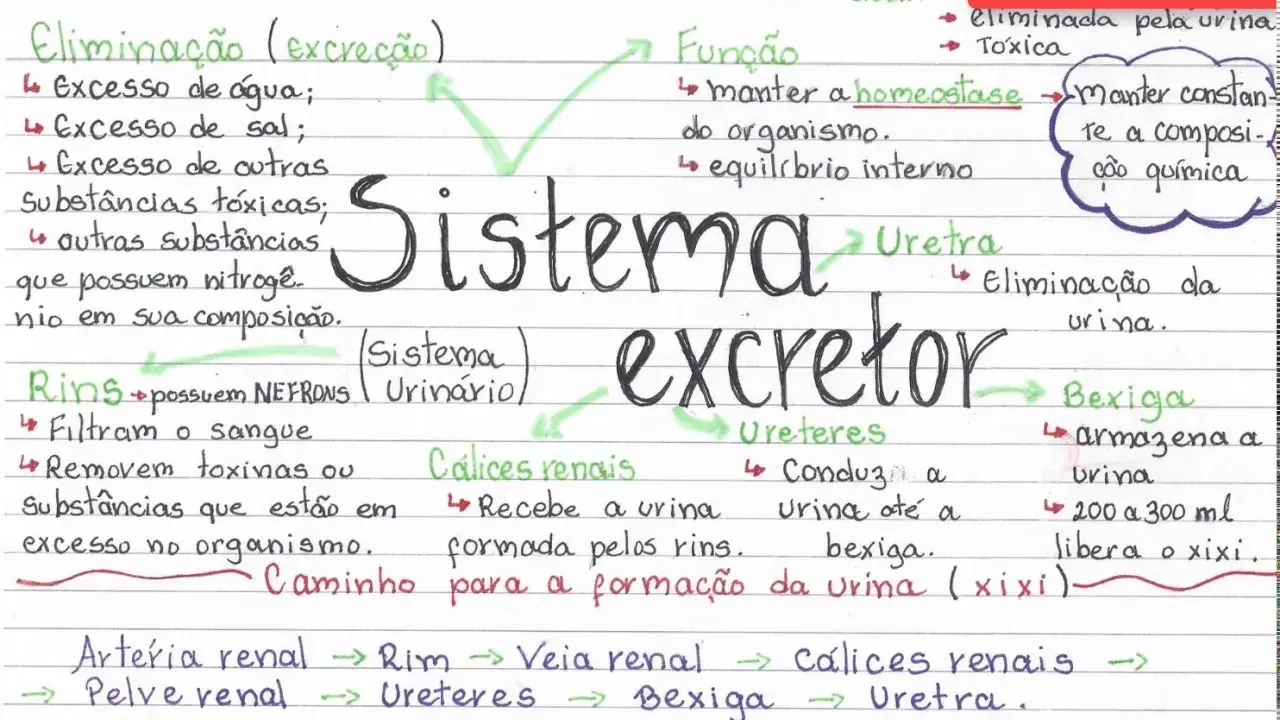 eliminada pela urina
Tóxica
Eliminação (excreção)
Excesso de água;
Excesso de sal;
Excesso de outras
substâncias tóxicas;
outras substâncias
que possuem nitrogê-
nio em sua composição.
Função
manter a homeostase
do organismo.
equilíbrio interno
manter constan-
te a composi-
ção química
Sistema
excretor
(Sistema
Urinário)
Uretra
Eliminação da
urina.
Rins possuem NEFRONS
Filtram o sangue
Removem toxinas ou
substâncias que estão em
excesso no organismo.
Cálices renais
Recebe a urina
formada pelos rins.
Ureteres
Conduz a
urina até a
bexiga.
Bexiga
armazena a
urina
200 a 300 ml
libera o xixi.
Caminho para a formação da urina (xixi)
Artéria renal → Rim → Veia renal → Cálices renais →
→ Pelve renal → Ureteres → Bexiga → Uretra.